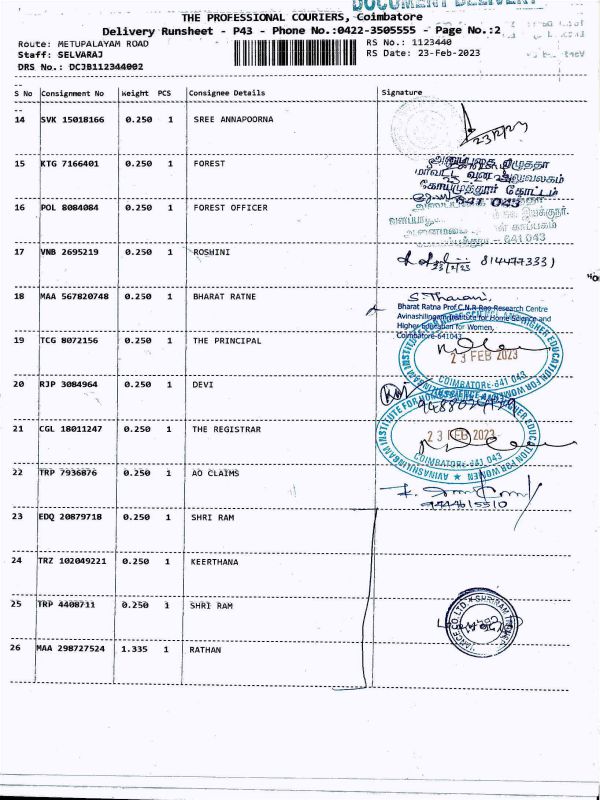 DOCUMENT DELIVERY
THE PROFESSIONAL COURIERS, Coimbatore
Delivery Runsheet - P43 - Phone No.:0422-3505555 - Page No.:2
Route: METUPALAYAM ROAD RS No.: 1123440
Staff: SELVARAJ RS Date: 23-Feb-2023
DRS No.: DCJB112344002
S No Consignment No Weight PCS Consignee Details Signature
14 SVK 15018166 0.250 1 SREE ANNAPOORNA
23/2/23
15 KTG 7166401 0.250 1 FOREST
மாவட்ட வன அலுவலகம்
கோயமுத்தூர் கோட்டம்
641 043
16 POL 8084084 0.250 1 FOREST OFFICER
641 043
17 VNB 2695219 0.250 1 ROSHINI
23/2/23 814477333
18 MAA 567820748 0.250 1 BHARAT RATNE
S. Tharani
Bharat Ratna Prof.C.N.R Rao Research Centre
Avinashilingam Institute for Home Science and
Higher Education for Women,
Coimbatore-641043
19 TCG 8072156 0.250 1 THE PRINCIPAL
23 FEB 2023
COIMBATORE-641 043
20 RJP 3084964 0.250 1 DEVI
21 CGL 18011247 0.250 1 THE REGISTRAR
AVINASHILINGAM INSTITUTE FOR HOME SCIENCE AND HIGHER EDUCATION FOR WOMEN
23 FEB 2023
COIMBATORE-641 043
22 TRP 7936876 0.250 1 AO CLAIMS
9444615510
23 EDQ 20879718 0.250 1 SHRI RAM
24 TRZ 102049221 0.250 1 KEERTHANA
25 TRP 4408711 0.250 1 SHRI RAM
26 MAA 298727524 1.335 1 RATHAN